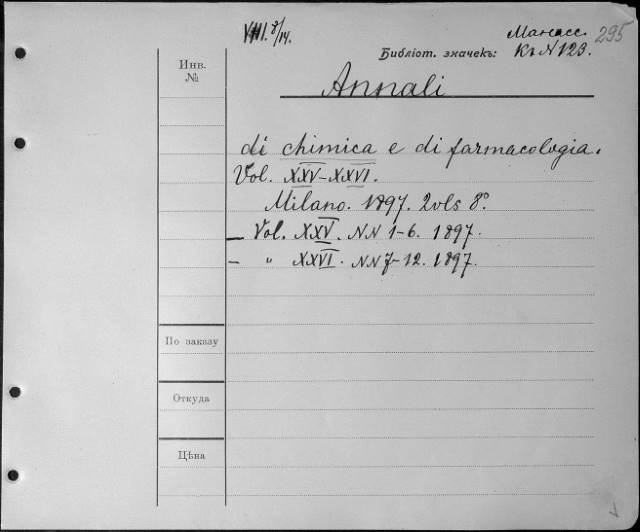 VIII. 8/14.
Манасс. 295
Библіот. значекъ: Къ N 123.
Инв.
№
Annali
di chimica e di farmacologia.
Vol. XXV-XXVI.
Milano. 1897. 2 vls 8°
— Vol. XXV. NN 1-6. 1897.
— " XXVI. NN 7-12. 1897.
По заказу
Откуда
Цѣна